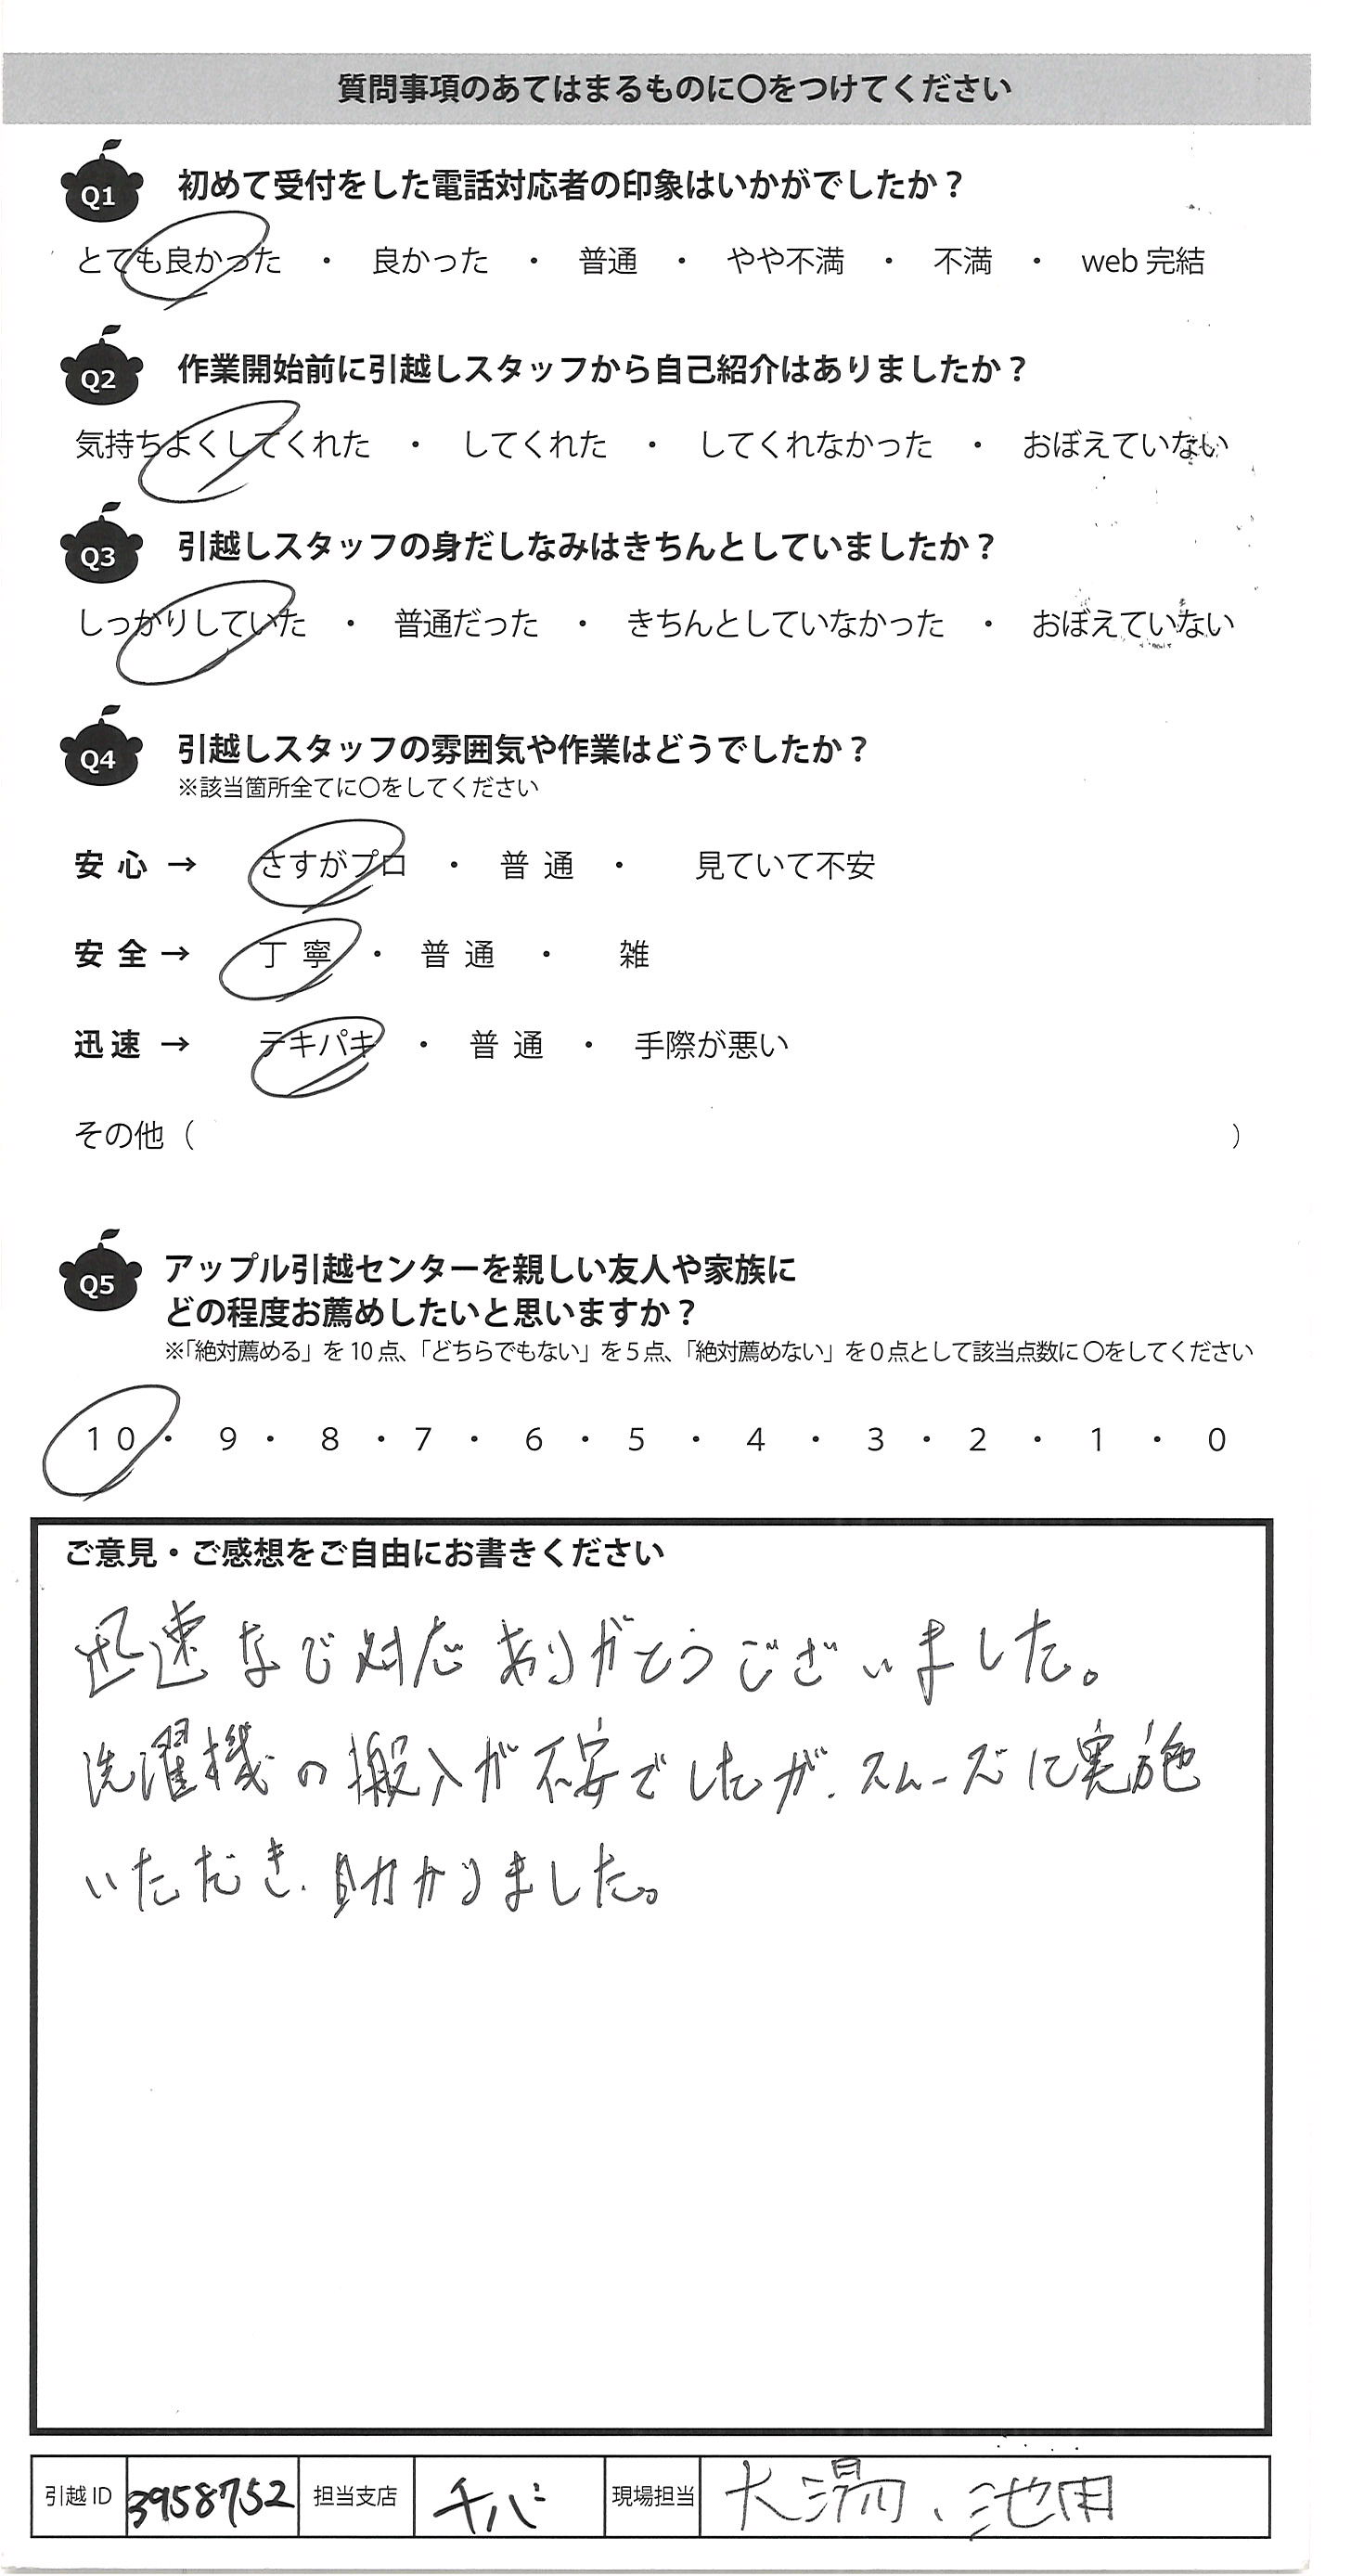 質問事項のあてはまるものに〇をつけてください
Q1 初めて受付をした電話対応者の印象はいかがでしたか？
とても良かった ・ 良かった ・ 普通 ・ やや不満 ・ 不満 ・ web 完結
Q2 作業開始前に引越しスタッフから自己紹介はありましたか？
気持ちよくしてくれた ・ してくれた ・ してくれなかった ・ おぼえていない
Q3 引越しスタッフの身だしなみはきちんとしていましたか？
しっかりしていた ・ 普通だった ・ きちんとしていなかった ・ おぼえていない
Q4 引越しスタッフの雰囲気や作業はどうでしたか？
※該当箇所全てに〇をしてください
安心 → さすがプロ ・ 普通 ・ 見ていて不安
安全 → 丁寧 ・ 普通 ・ 雑
迅速 → テキパキ ・ 普通 ・ 手際が悪い
その他（ ）
Q5 アップル引越センターを親しい友人や家族に
どの程度お薦めしたいと思いますか？
※「絶対薦める」を10点、「どちらでもない」を5点、「絶対薦めない」を0点として該当点数に〇をしてください
10 ・ 9 ・ 8 ・ 7 ・ 6 ・ 5 ・ 4 ・ 3 ・ 2 ・ 1 ・ 0
ご意見・ご感想をご自由にお書きください
迅速なご対応ありがとうございました。
洗濯機の搬入が不安でしたが、スムーズに実施
いただき、助かりました。
引越ID 3958752 担当支店 チバ 現場担当 大湯、池田